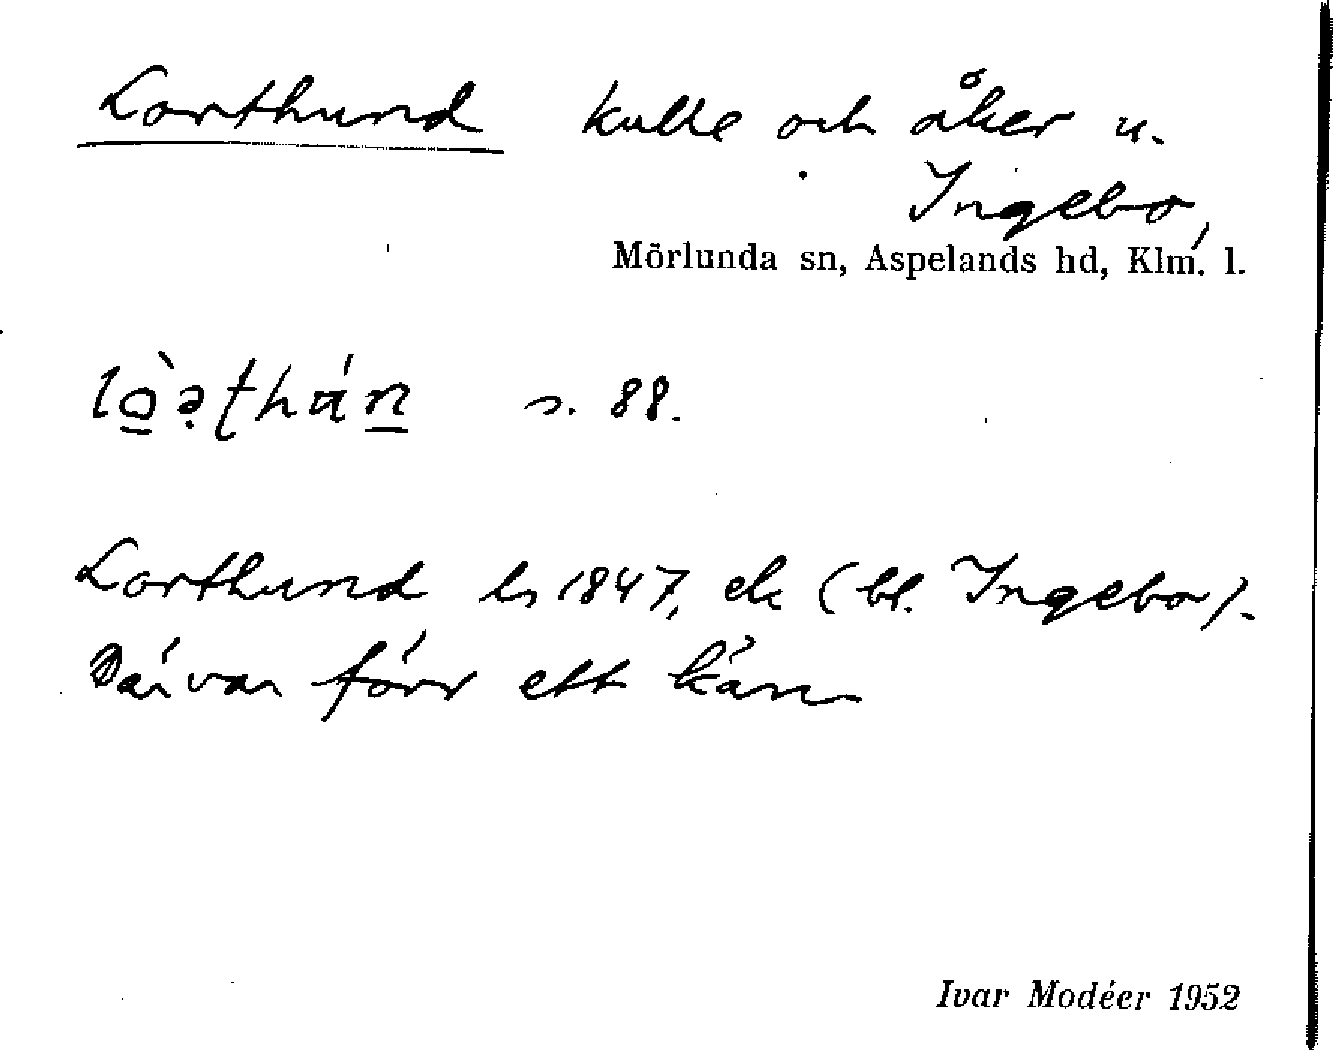 Lorthund kulle och åker u.
Ingebo,
Mörlunda sn, Aspelands hd, Klm. l.
s. 88.
Lorthund ls 1847, ek (bl. Ingebo).
Där var förr ett kärr
Ivar Modéer 1952